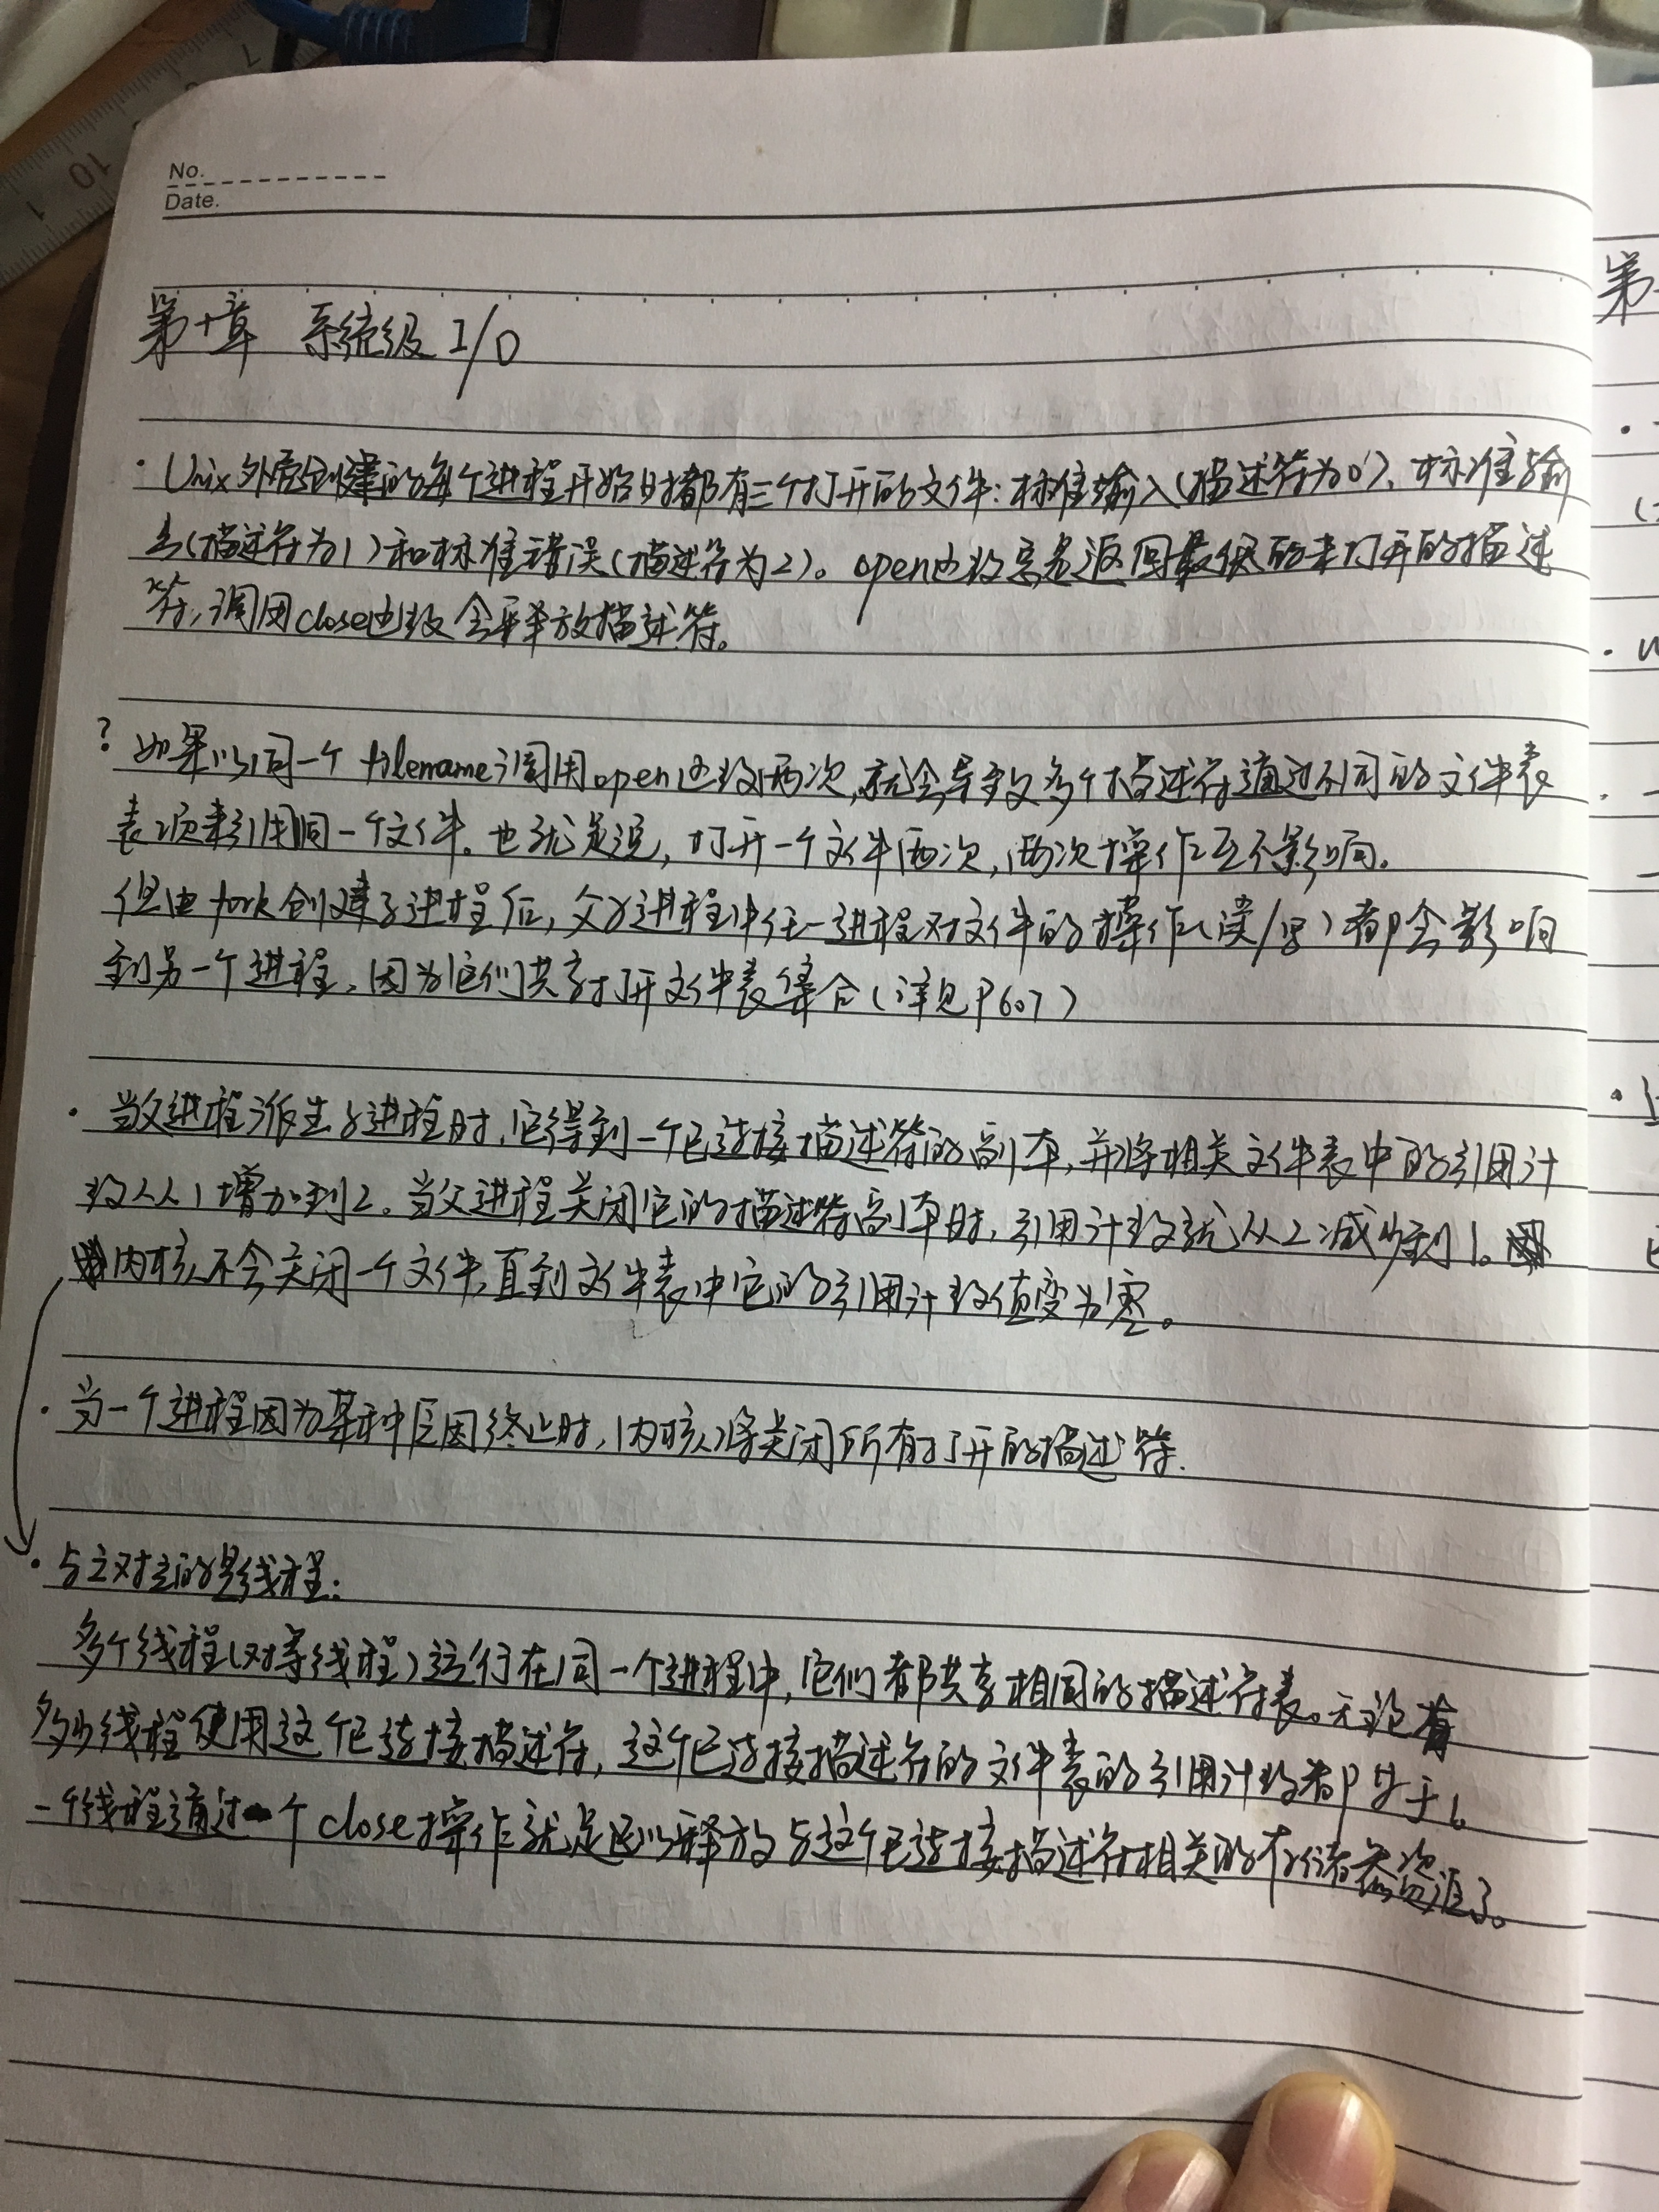 No.
Date.
第十章 系统级 I/O
· Unix外壳创建的每个进程开始时都有三个打开的文件:标准输入(描述符为0)、标准输
出(描述符为1)和标准错误(描述符为2)。open函数总是返回最低的未打开的描述
符,调用close函数会释放描述符。
? 如果以同一个filename调用open函数两次,就会导致多个描述符通过不同的文件表
表项来引用同一个文件。也就是说,打开一个文件两次,两次操作互不影响。
但由fork创建子进程后,父子进程中任一进程对文件的操作(读/写)都会影响
到另一个进程,因为它们共享打开文件表集合(详见P607)
· 当父进程派生子进程时,它得到一个已连接描述符的副本,并将相关文件表中的引用计
数从1增加到2。当父进程关闭它的描述符副本时,引用计数就从2减少到1。
内核不会关闭一个文件,直到文件表中它的引用计数值变为零。
· 当一个进程因为某种原因终止时,内核将关闭所有打开的描述符.
· 与之对应的是线程:
多个线程(对等线程)运行在同一个进程中,它们都共享相同的描述符表。无论有
多少线程使用这个已连接描述符,这个已连接描述符的文件表的引用计数都等于1。
一个线程通过一个close操作就足以释放与这个已连接描述符相关的存储器资源了。
第